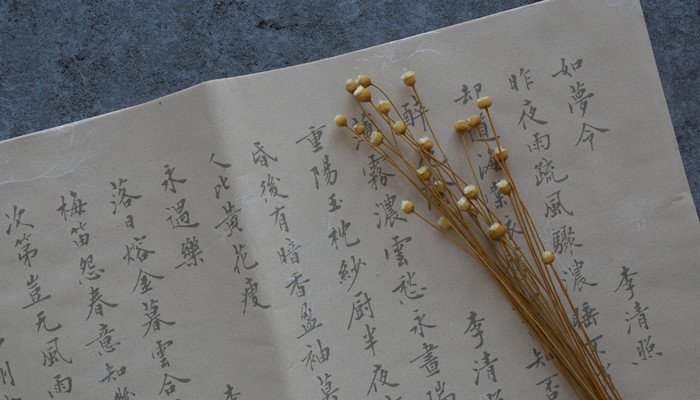 如夢令 李清照
昨夜雨疏風驟濃睡不
却道海棠依 知否
醉 李清照
薄霧濃雲愁永晝瑞
重陽玉枕紗厨半夜
昏後有暗香盈袖莫
人比黃花瘦
永遇樂 李
落日熔金暮雲合
梅笛怨春意知幾
次第豈无風雨